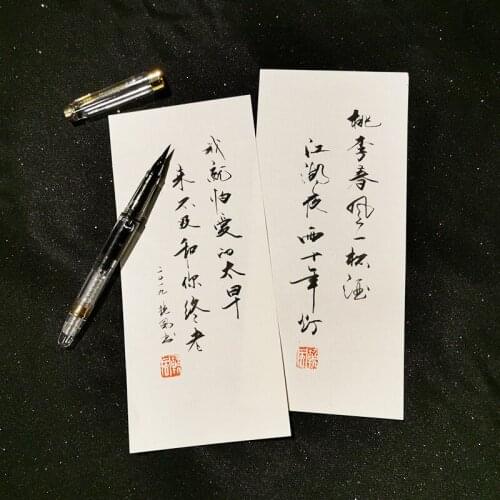 我就怕爱的太早
来不及和你终老
二〇一九
书
桃李春风一杯酒
江湖夜雨十年灯